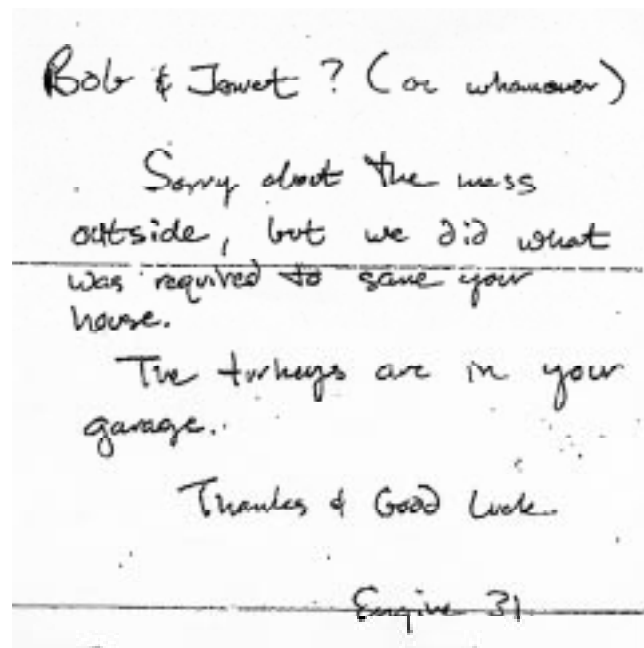 Bob & Janet ? (or whomever)
Sorry about the mess
outside, but we did what
was required to save your
house.
The turkeys are in your
garage.
Thanks & Good Luck.
Engine 31